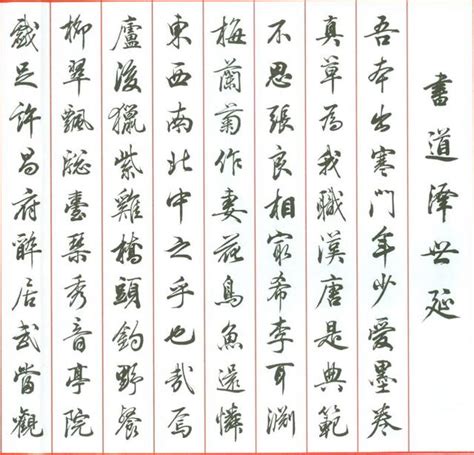 書道澤世延
吾本出寒門年少愛墨卷
真草為我職漢唐是典範
不思張良相家希李耳淵
梅蘭菊作妻花鳥魚還憐
東西南北中之乎也哉焉
廬後獵紫雞橋頭釣野餐
柳翠飄牕臺琴秀音亭院
戲足許昌府醉居武當觀